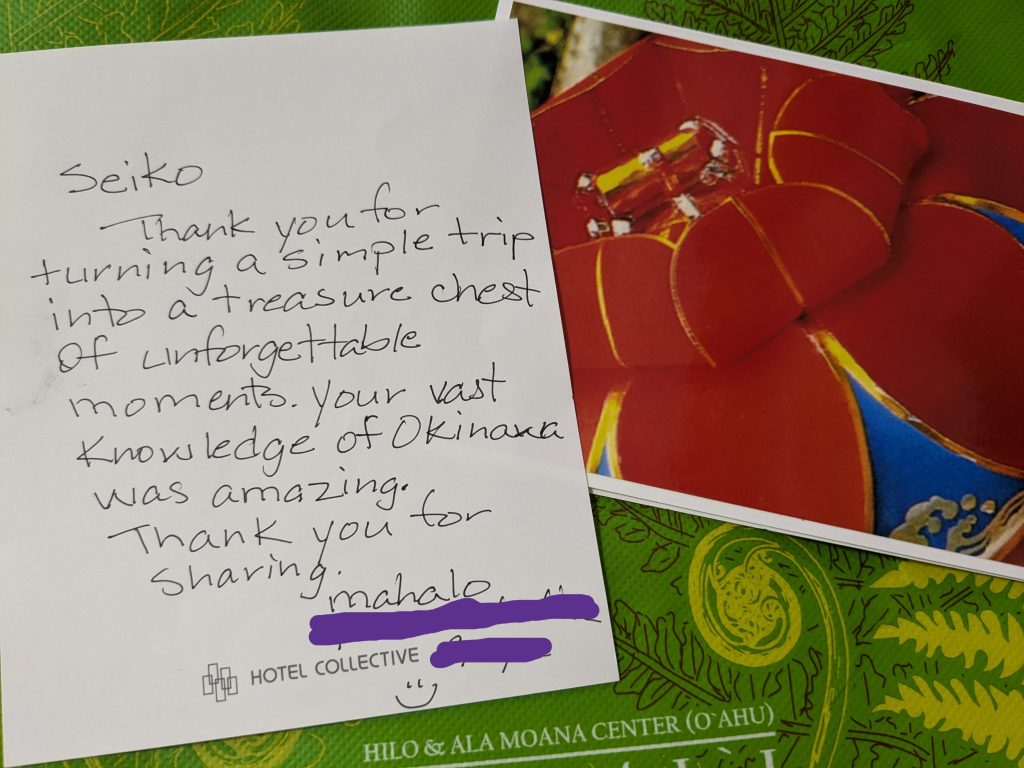 Seiko
Thank you for
turning a simple trip
into a treasure chest
Of unforgettable
moments. Your vast
Knowledge of Okinawa
was amazing.
Thank you for
Sharing.
mahalo
HOTEL COLLECTIVE
HILO & ALA MOANA CENTER (O`AHU)